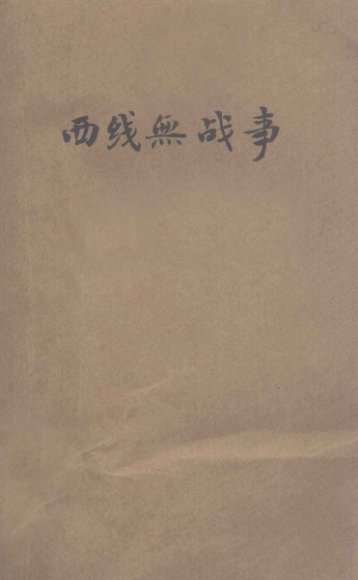 西线無战事